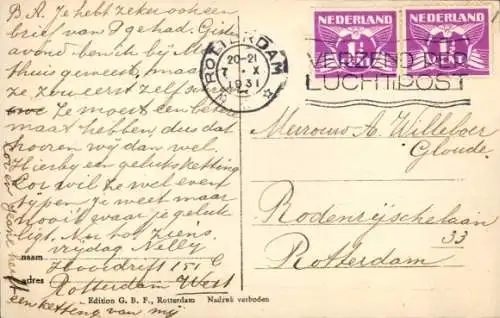 B.A. Je hebt zeker ook een
brief van D gehad. Gist
avond ben ik bij
thuis geweest, maar
ze zou eerst zelf
Je moest een
maat hebben, dus dat
hooren wij dan wel.
Hierbij een geluksketting
Cor wil ze wel even
typen. Je weet maar
nooit waar je geluk
ligt. Nu tot Ziens.
vrijdag Nelly
naam
Hooidrift 151 C
adres Rotterdam West
een ketting van mij
Cor en
Edition G. B. F., Rotterdam Nadruk verboden
ROTTERDAM
20-21
7 X
1931
NEDERLAND
1½
NEDERLAND
1½
VERZEND PER
LUCHTPOST
Mevrouw A. Willeboer
Gloude.
Rodenrijschelaan
33
Rotterdam